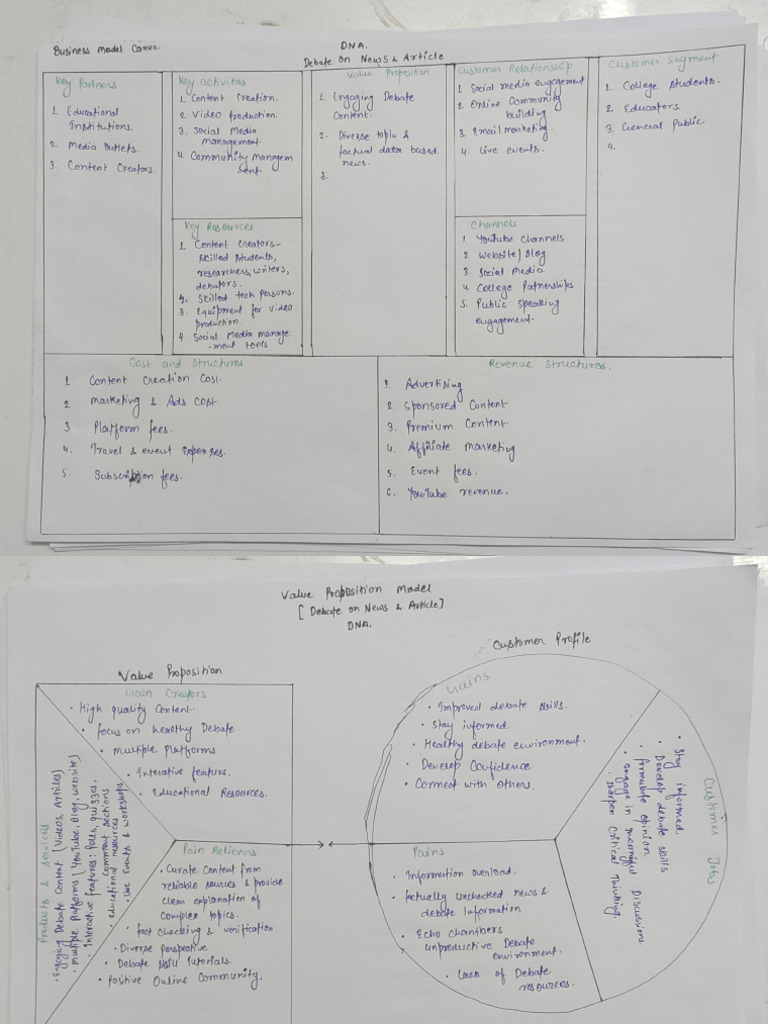 Business Model Canva.
DNA.
Debate on News & Article
Key Partners
1. Educational
Institutions.
2. Media Outlets.
3. Content Creators.
Key activities
1. Content Creation.
2. Video production.
3. Social Media
management.
4. Community Managem
ent.
Key Resources
1. Content Creators-
skilled students,
researchers, writers,
debators.
2. Skilled tech persons.
3. Equipment for video
production.
4. Social Media manage
-ment tools
Value Proposition
1. Engaging Debate
Content.
2. Diverse topic &
factual data based
news.
3.
Customer Relationship
1. Social media engagement
2. Online Community
building
3. Email marketing.
4. Live events.
Channels
1. YouTube Channels
2. Website/Blog
3. Social Media
4. College Partnerships
5. Public Speaking
engagement.
Customer Segment
1. College Students.
2. Educators.
3. General Public.
4.
Cost and Structures
1 Content Creation Cost
2 Marketing & Ads Cost
3 Platform fees.
4. Travel & event Expenses.
5. Subscription fees.
Revenue Structures.
1. Advertising
2. Sponsored Content
3. Premium Content
4. Affiliate Marketing
5. Event fees.
6. YouTube revenue.
Value Proposition Model
[Debate on News & Article]
DNA.
Value Proposition
Gain Creators
• High quality Content.
• focus on healthy Debate
• Multiple Platforms
• Interative feature.
• Educational Resources.
Products & services
• Engaging Debate Content (Videos, Articles)
• Multiple Platforms (YouTube, Blog, website)
• Interactive features: Polls, quizzes,
comment sections
• educational resources
• Live Events & workshops
Pain Relievers
• Curate Content from
reliable sources & provide
clean explanation of
complex topics.
• fact checking & verification
• Diverse perspective
• Debate skill Tutorials.
• Positive Online Community.
Customer Profile
Gains
• Improved debate skills.
• Stay informed.
• Healthy debate environment.
• Develop Confidence
• Connect with others.
Customer Jobs
• Stay informed.
• Develop debate skills
• formulate opinion
• engage in meaningful Discussions.
• sharpen Critical Thinking.
Pains
• Information overload.
• Actually unchecked news &
debate Information
• Echo chambers
unproductive Debate
environment.
• Lack of Debate
resources.